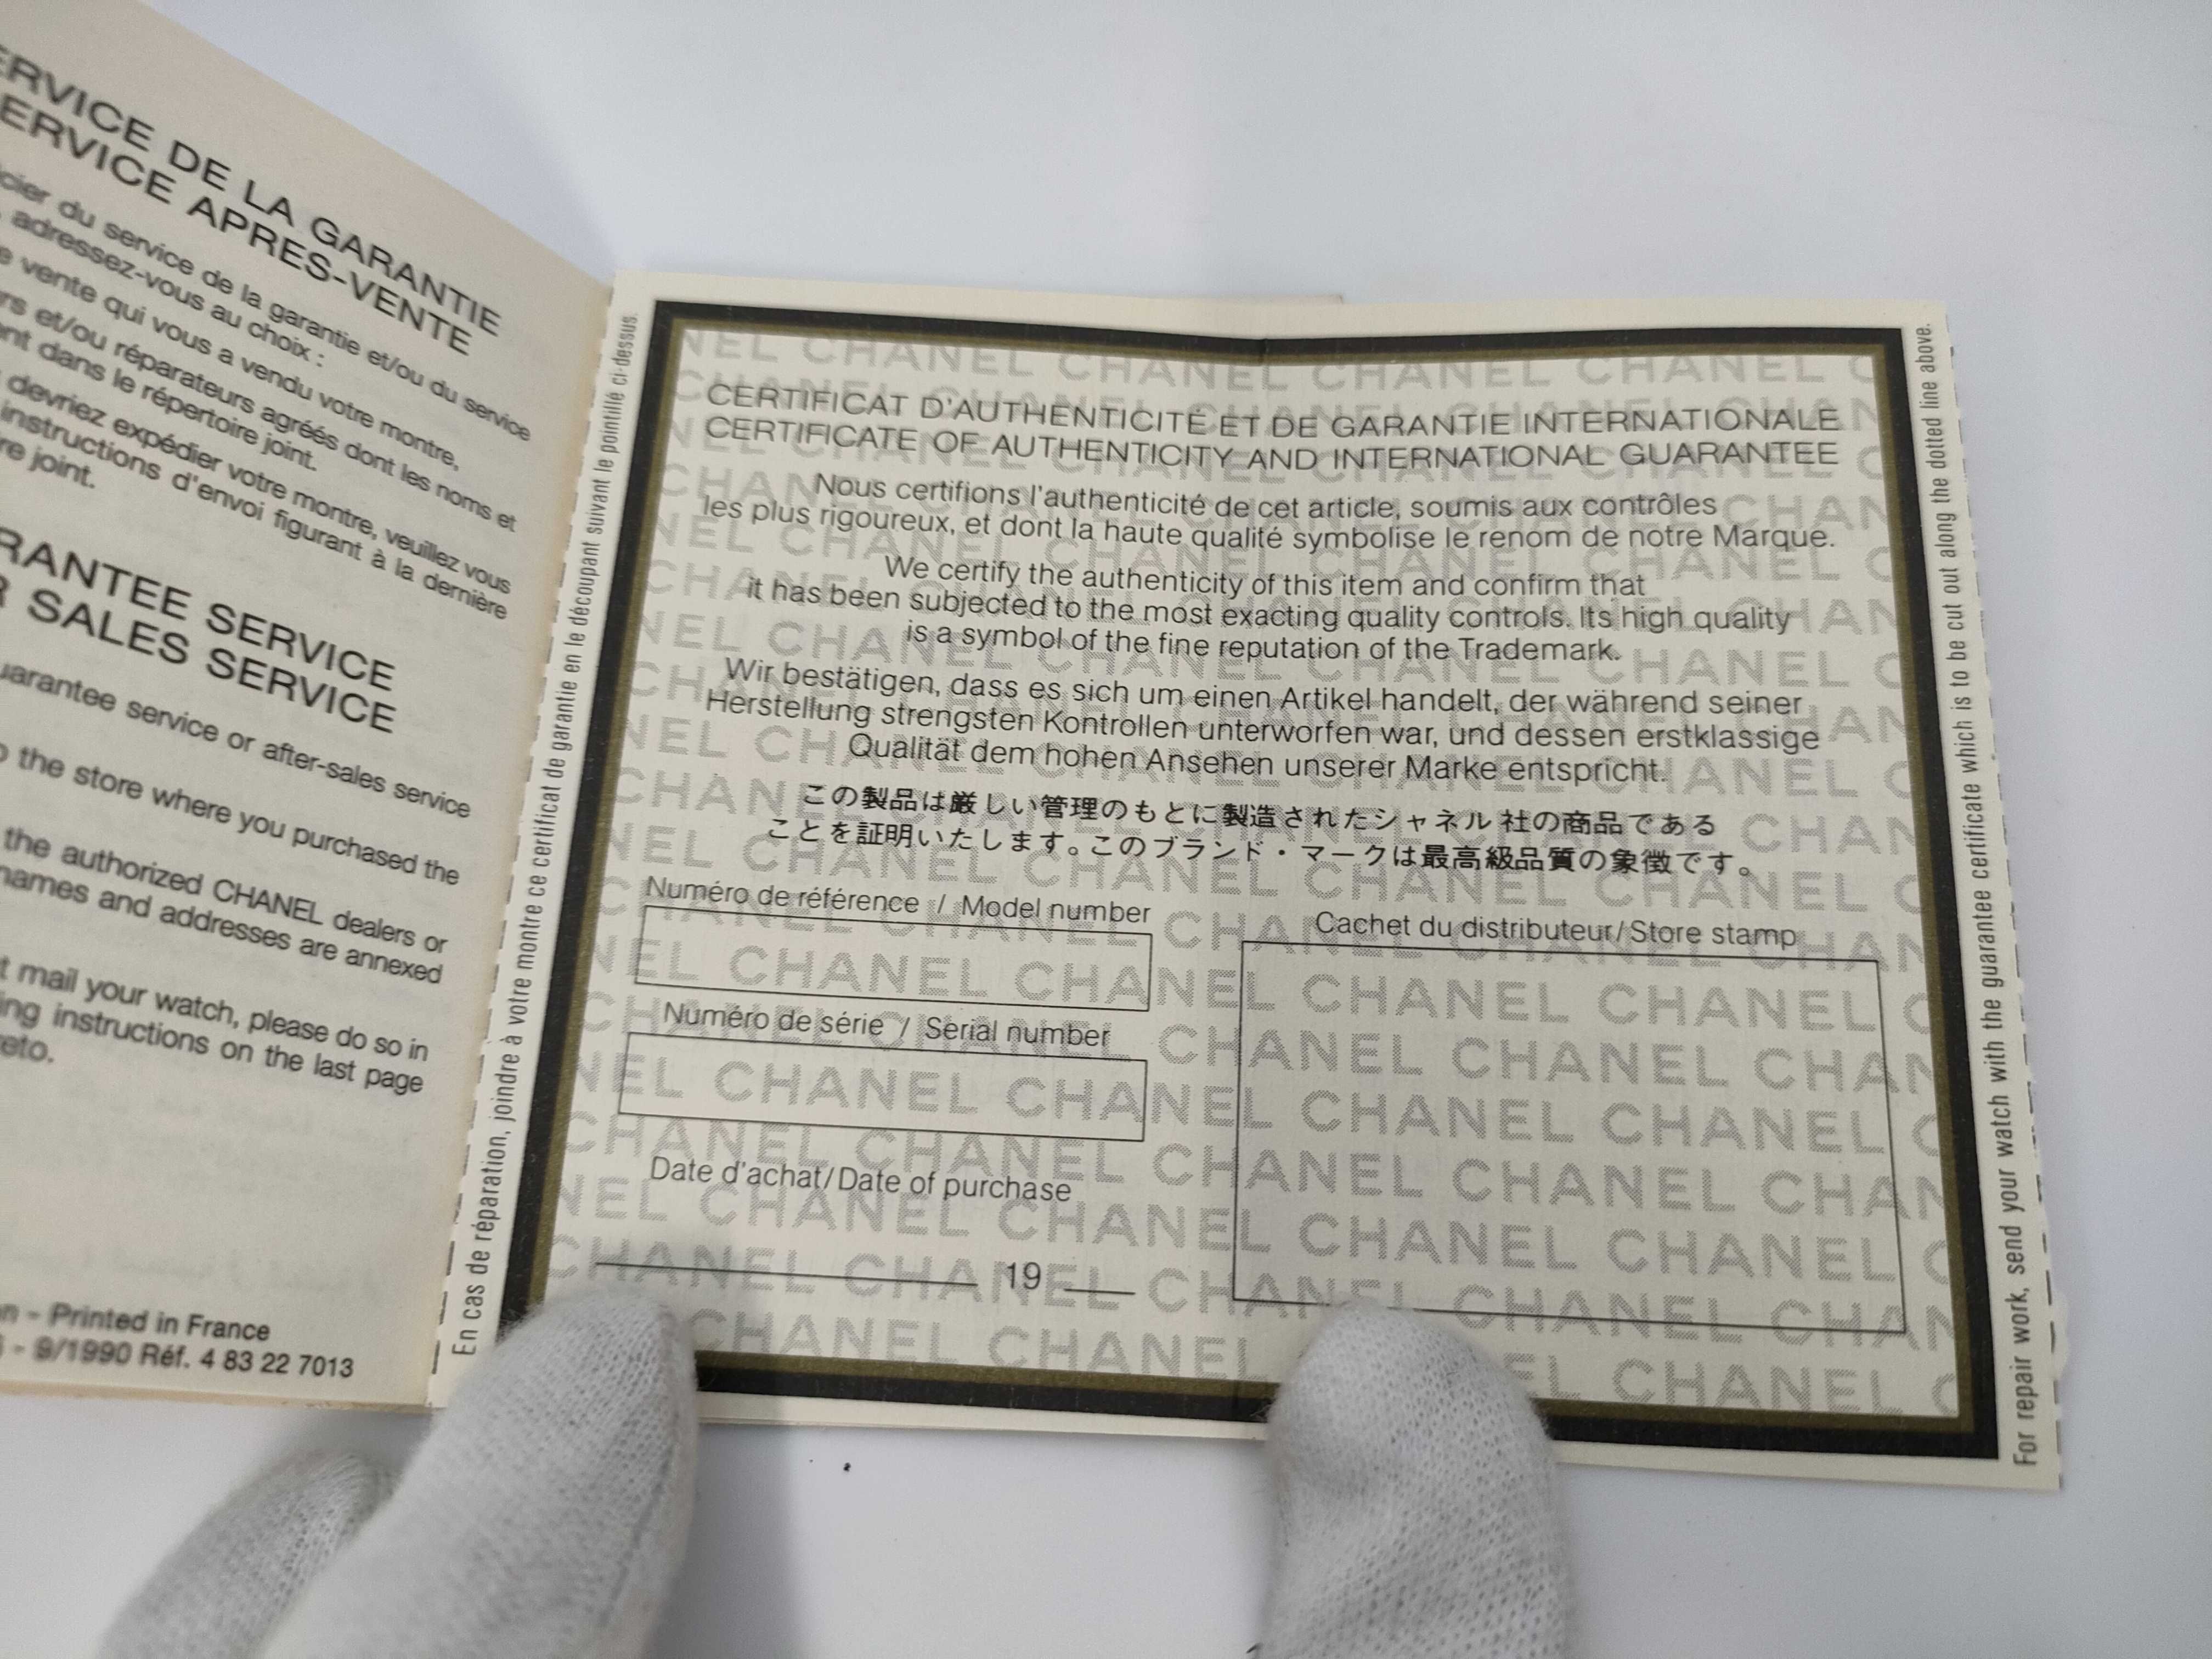 ERVICE DE LA GARANTIE
ERVICE APRES-VENTE
cier du service de la garantie et/ou du service
adressez-vous au choix :
e vente qui vous a vendu votre montre,
rs et/ou réparateurs agréés dont les noms et
nt dans le répertoire joint.
devriez expédier votre montre, veuillez vous
instructions d'envoi figurant à la dernière
re joint.
RANTEE SERVICE
R SALES SERVICE
uarantee service or after-sales service
o the store where you purchased the
the authorized CHANEL dealers or
names and addresses are annexed
t mail your watch, please do so in
ing instructions on the last page
eto.
n - Printed in France
- 9/1990 Réf. 4 83 22 7013
En cas de réparation, joindre à votre montre ce certificat de garantie en le découpant suivant le pointillé ci-dessus.
CERTIFICAT D'AUTHENTICITÉ ET DE GARANTIE INTERNATIONALE
CERTIFICATE OF AUTHENTICITY AND INTERNATIONAL GUARANTEE
Nous certifions l'authenticité de cet article, soumis aux contrôles
les plus rigoureux, et dont la haute qualité symbolise le renom de notre Marque.
We certify the authenticity of this item and confirm that
it has been subjected to the most exacting quality controls. Its high quality
is a symbol of the fine reputation of the Trademark.
Wir bestätigen, dass es sich um einen Artikel handelt, der während seiner
Herstellung strengsten Kontrollen unterworfen war, und dessen erstklassige
Qualität dem hohen Ansehen unserer Marke entspricht.
この製品は厳しい管理のもとに製造されたシャネル社の商品である
ことを証明いたします。このブランド・マークは最高級品質の象徴です。
Numéro de référence / Model number
Numéro de série / Serial number
Date d'achat/Date of purchase
19
Cachet du distributeur/Store stamp
CHANEL CHANEL CHANEL CHANEL
For repair work, send your watch with the guarantee certificate which is to be cut out along the dotted line above.